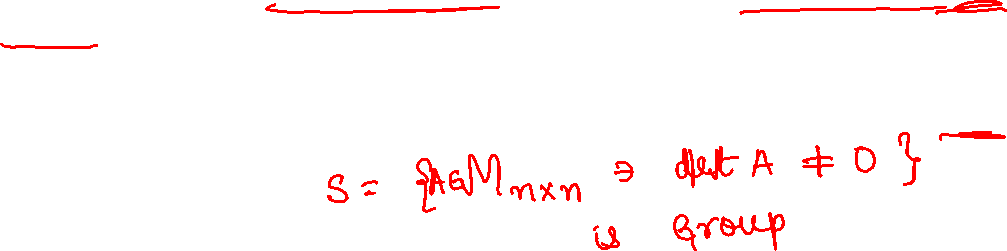 S = {A∈M n×n ∋ det A ≠ 0}
is Group